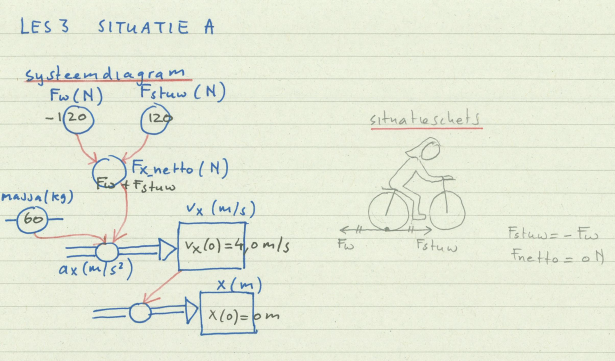 LES 3 SITUATIE A
systeemdiagram
Fw (N) Fstuw (N)
-120 120
Fx_netto (N)
Fw + Fstuw
massa (kg)
60
vx (m/s)
vx(0) = 4,0 m/s
ax (m/s²)
x (m)
x(0) = 0 m
situatieschets
Fw Fstuw
Fstuw = - Fw
Fnetto = 0 N